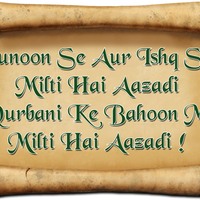 unoon Se Aur Ishq S
Milti Hai Aazadi
Qurbani Ke Bahoon M
Milti Hai Aazadi !